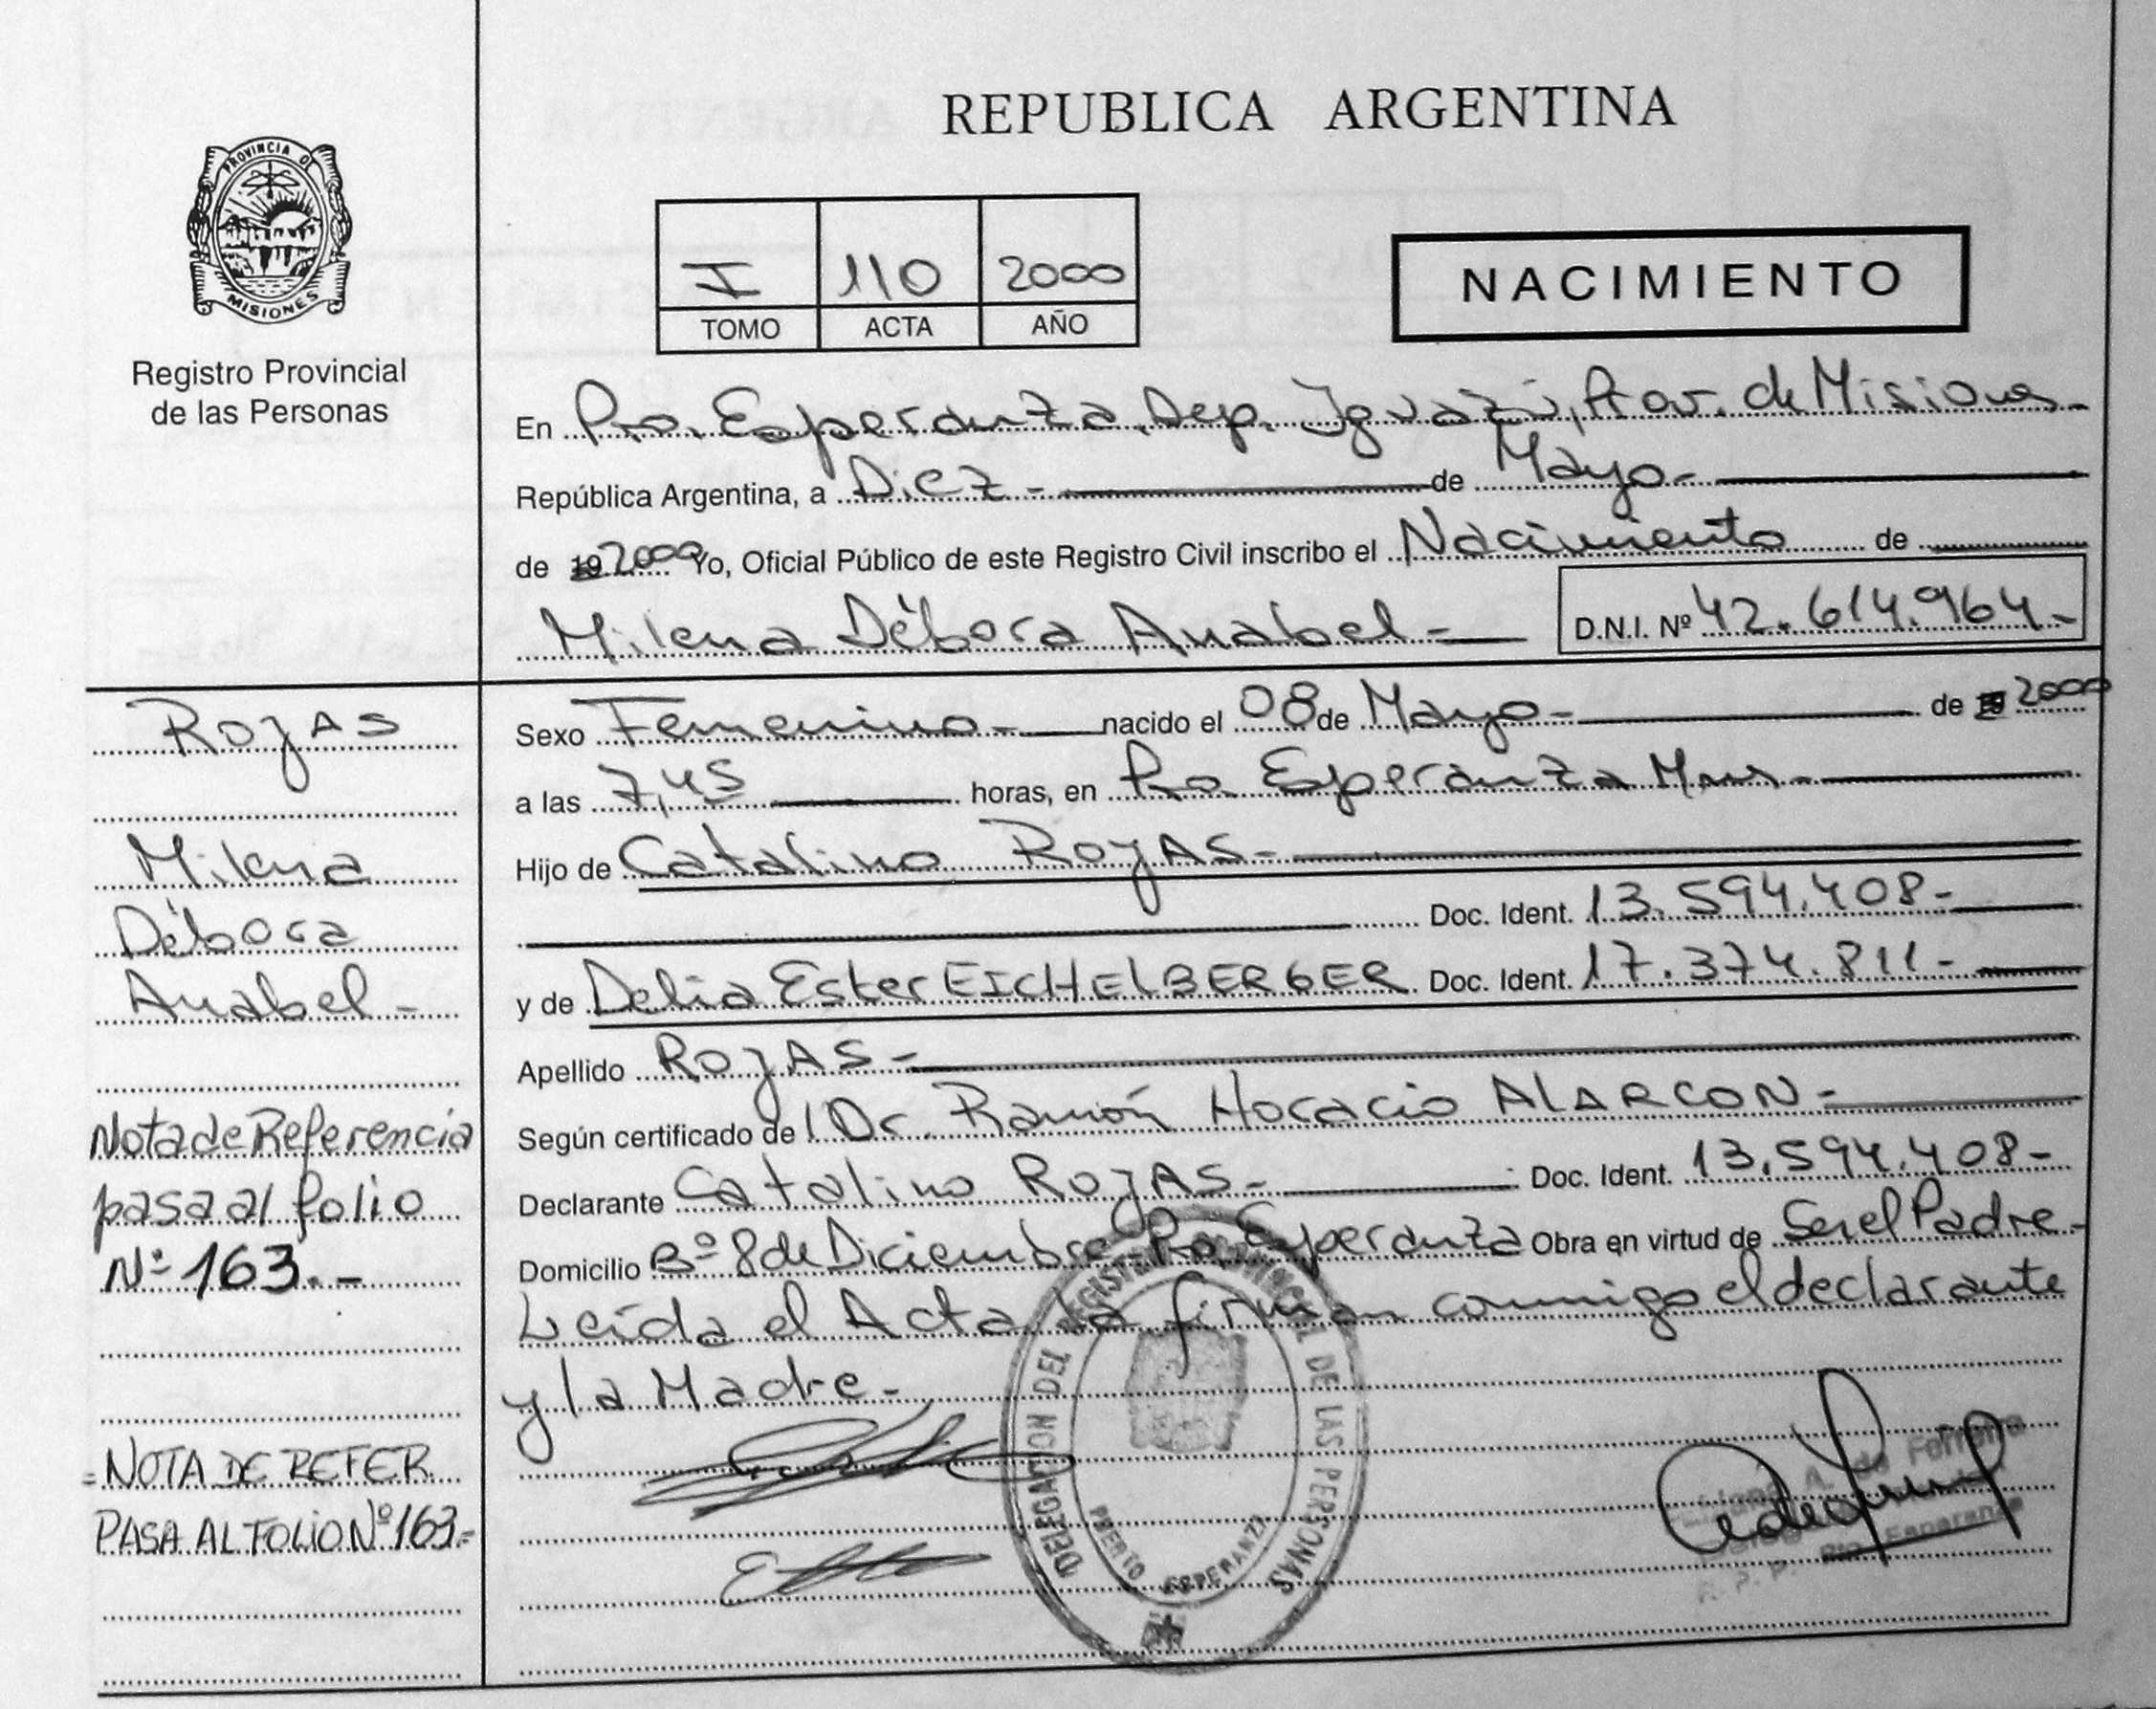 REPUBLICA ARGENTINA
PROVINCIA DE
MISIONES
Registro Provincial
de las Personas
I 110 2000
TOMO ACTA AÑO
NACIMIENTO
En Pto. Esperanza, Dep. Iguazú, Prov. de Misiones-
República Argentina, a Diez - de Mayo-
de 19 2000 Yo, Oficial Público de este Registro Civil inscribo el Nacimiento de
Milena Débora Anabel-
D.N.I. Nº 42.614.964.-
ROJAS
Milena
Débora
Anabel-
Nota de Referencia
pasa al folio
Nº 163.-
=NOTA DE REFER
PASA AL FOLIO Nº 163.=
Sexo Femenino- nacido el 08 de Mayo- de 2000
a las 7,45 horas, en Pto. Esperanza Mnes-
Hijo de Catalino ROJAS-
Doc. Ident. 13.594.408-
y de Delia Ester EICHELBERGER Doc. Ident. 17.374.811-
Apellido ROJAS-
Según certificado de Dr. Ramón Horacio ALARCON-
Declarante Catalino ROJAS- Doc. Ident. 13.594.408-
Domicilio Bº 8 de Diciembre-Pto. Esperanza Obra en virtud de Ser el Padre-
Leída el Acta la firman conmigo el declarante
y la Madre-
DELEGACION DEL REGISTRO PROVINCIAL DE LAS PERSONAS
PUERTO ESPERANZA
A. de Ferreira
R. P. P. Pto. Esperanza